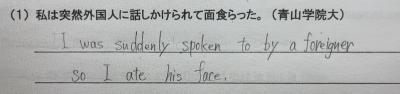 (1) 私は突然外国人に話しかけられて面食らった。(青山学院大)
I was suddenly spoken to by a foreigner
so I ate his face.